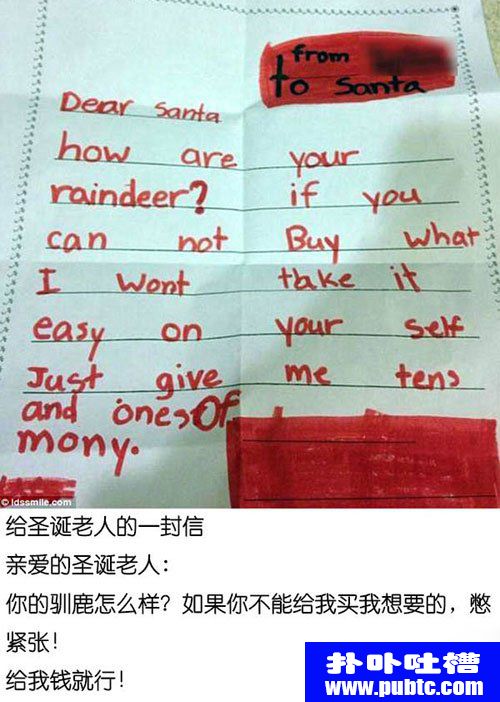 from
to Santa
Dear Santa
how are your
raindeer? if you
can not Buy what
I wont take it
easy on your self
Just give me tens
and ones Of
mony.
© ldssmile.com
给圣诞老人的一封信
亲爱的圣诞老人：
你的驯鹿怎么样？如果你不能给我买我想要的，憋
紧张！
给我钱就行！
扑卟吐槽
www.pubtc.com